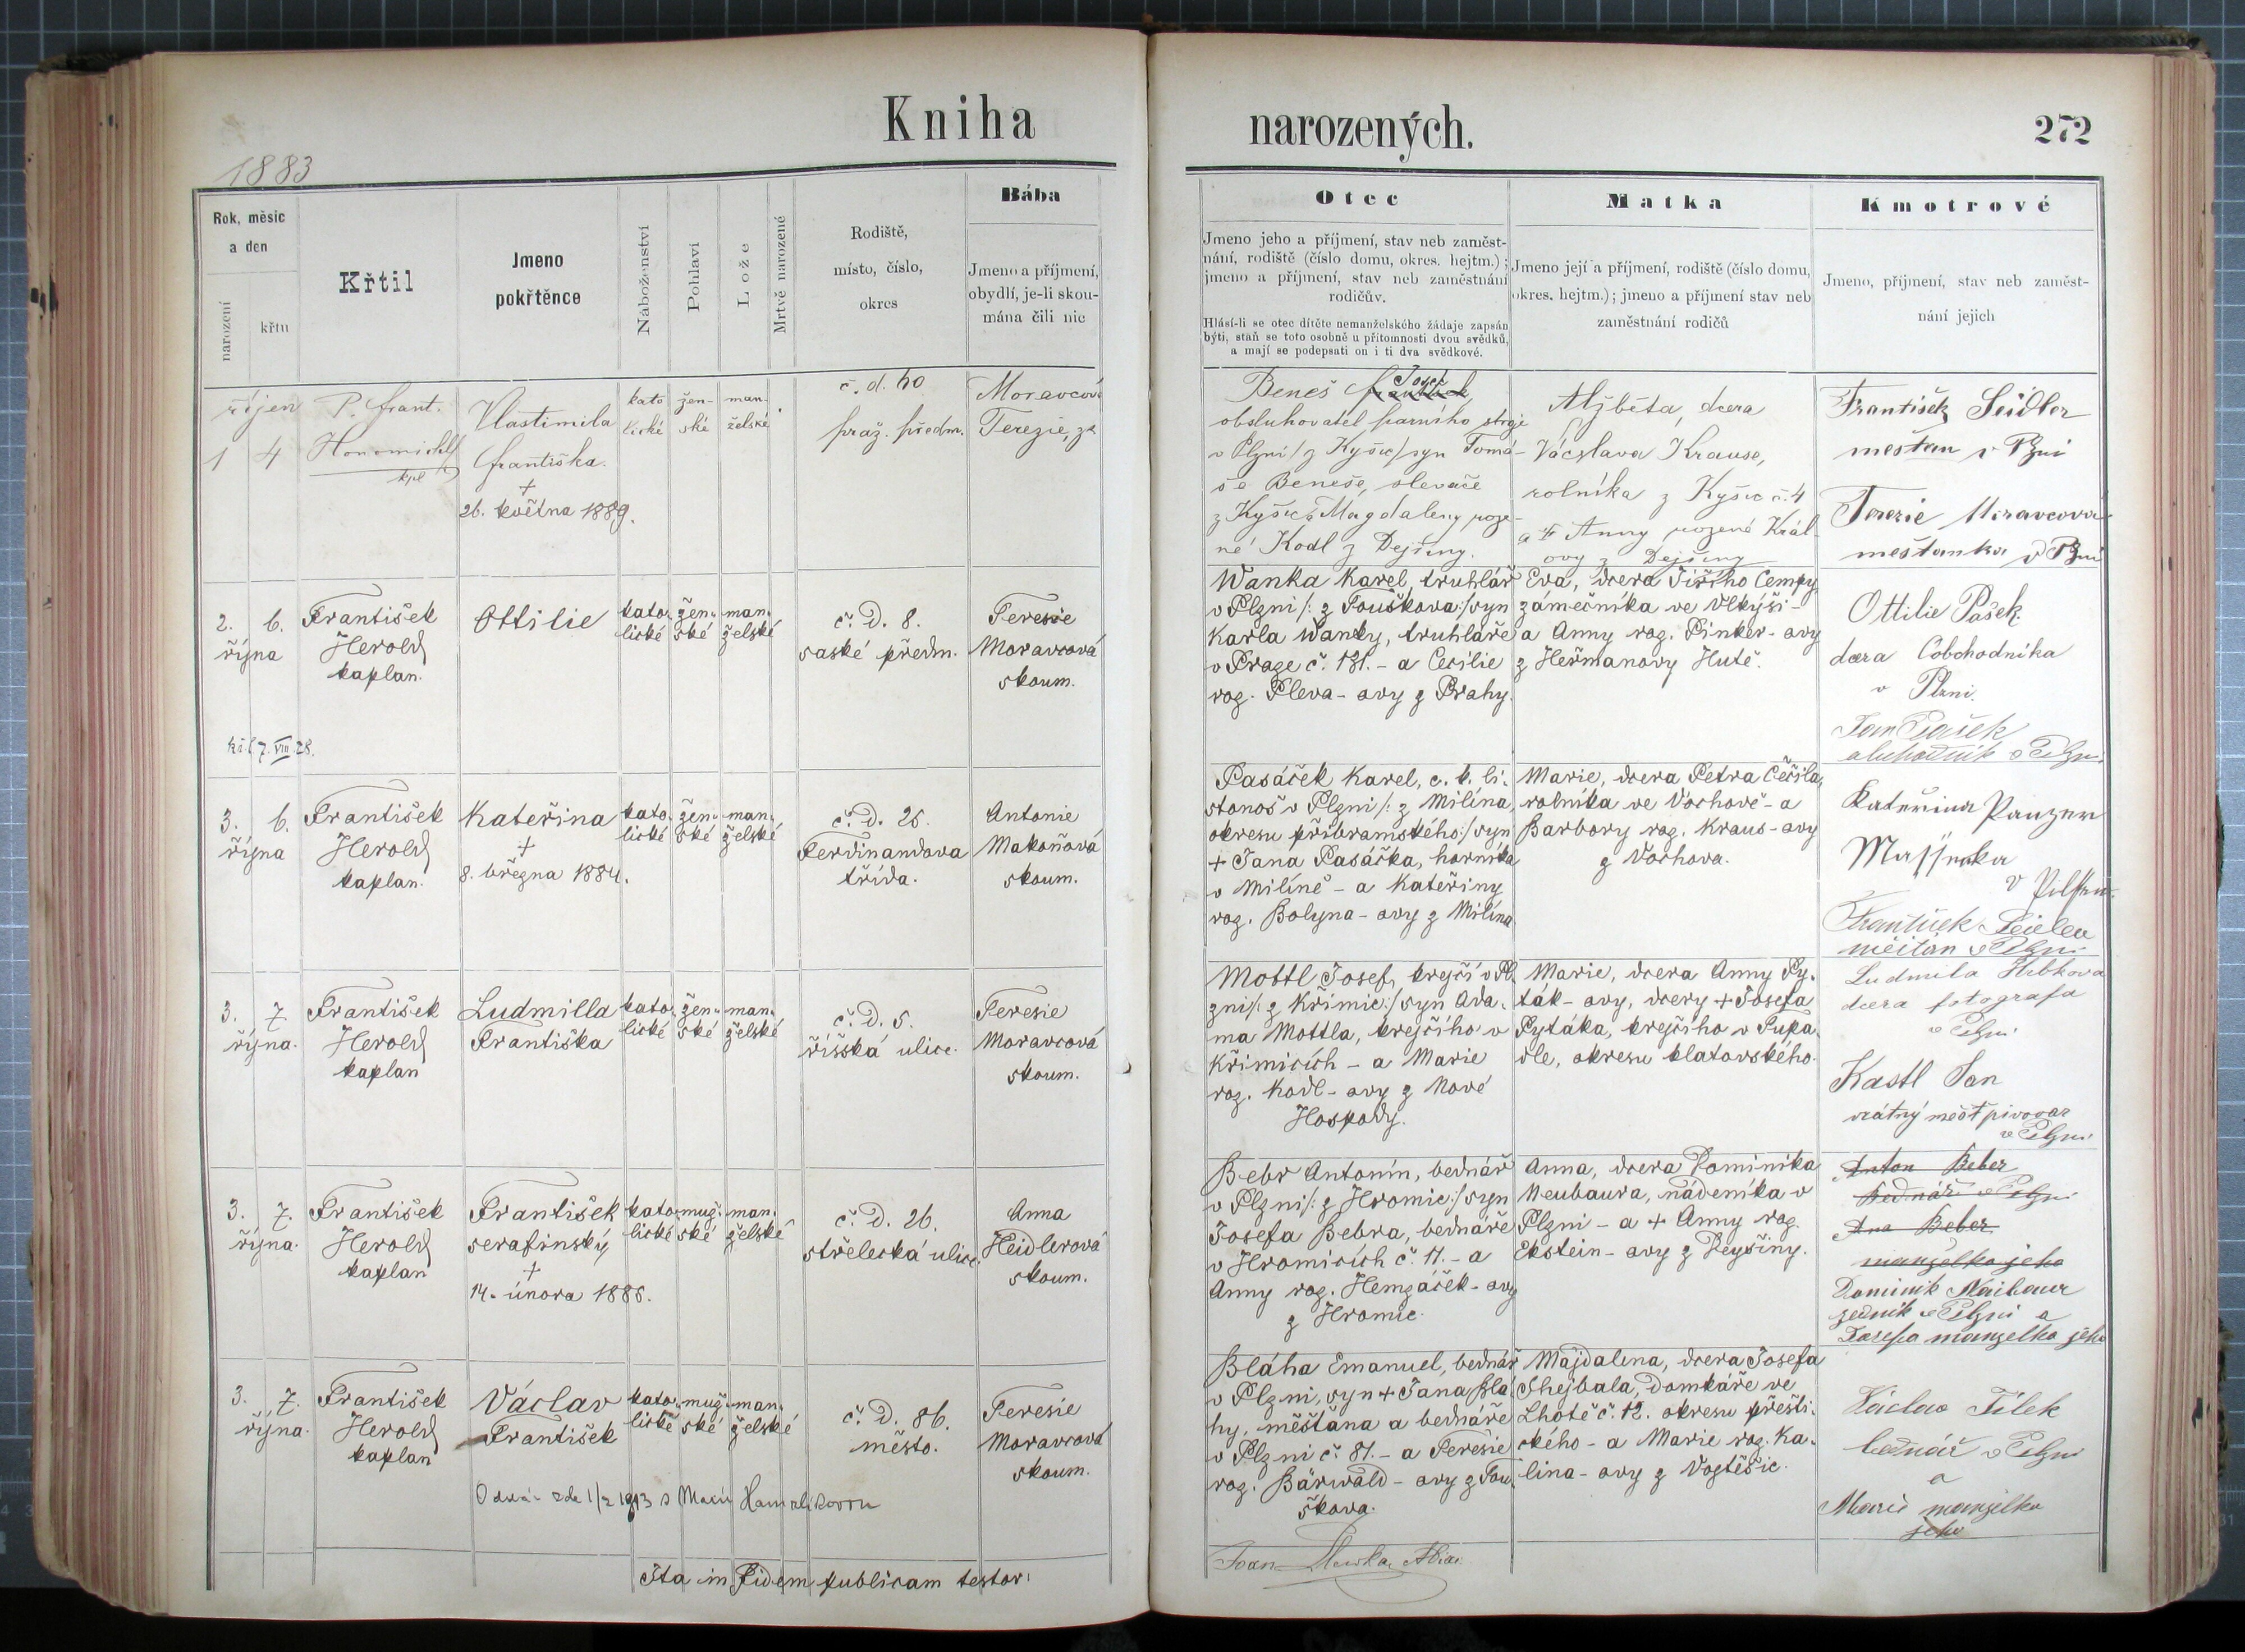 Kniha
1883
Rok, měsíc
a den
narození
křtu
Křtil
Jmeno
pokřtěnce
Náboženství
Pohlaví
Lože
Mrtvě narozené
Rodiště,
místo, číslo,
okres
Bába
Jmeno a příjmení,
obydlí, je-li skou-
mána čili nic
říjen
1 4
P. Frant.
Honomichl
kpl
Vlastimila
Františka.
+
26. května 1889.
kato
lické
žen-
ské
man-
želské
č. d. 60
praž. předm.
Moravcová
Terezie, zk
2. 6.
října
František
Herold
kaplan.
Ottilie
kato-
lické
žen-
ské
man-
želské
č. D. 8.
saské předm.
Teresie
Moravcová
skoum.
7. VIII. 28.
3. 6.
října
František
Herold
kaplan.
Kateřina
+
8. března 1884.
kato-
lické
žen-
ské
man-
želské
č. D. 25.
Ferdinandova
třída.
Antonie
Makoňová
skoum.
3. 7.
října.
František
Herold
kaplan
Ludmilla
Františka
kato-
lické
žen-
ské
man-
želské
č. D. 5.
říšská ulice.
Teresie
Moravcová
skoum.
3. 7.
října.
František
Herold
kaplan
František
serafinský
+
14. února 1885.
kato-
lické
muž-
ské
man-
želské
č. D. 26.
střelecká ulice.
Anna
Heidlerová
skoum.
3. 7.
října.
František
Herold
kaplan
Václav
František
kato-
lické
muž-
ské
man-
želské
č. D. 86.
město.
Teresie
Moravcová
skoum.
zde 1/2 1913 s Marií
Ita in fidem publicam testor:
narozených.
272
Otec
Jmeno jeho a příjmení, stav neb zaměst-
nání, rodiště (číslo domu, okres. hejtm.);
jmeno a příjmení, stav neb zaměstnání
rodičův.
Hlásí-li se otec dítěte nemanželského žádaje zapsán
býti, staň se toto osobně u přítomnosti dvou svědků,
a mají se podepsati on i ti dva svědkové.
Matka
Jmeno její a příjmení, rodiště (číslo domu,
okres. hejtm.); jmeno a příjmení stav neb
zaměstnání rodičů
Kmotrové
Jmeno, příjmení, stav neb zaměst-
nání jejich
Josef
Beneš František
obsluhovatel parního stroje
v Plzni /z Kyšic/ syn Tomá-
še Beneše, slevače
z Kyšic a Magdaleny roze-
né Kodl z Dejšiny.
Alžběta, dcera
Václava Krause,
rolníka z Kyšic č. 4
a + Anny rozené Král-
ovy z Dejšiny
František Seidler
mešťan v Plzni
Terezie Moravcová
mešťanka v Plzni
Wanka Karel, truhlář
v Plzni /: z Touškova :/ syn
Karla Wanky, truhláře
v Praze č. 131. - a Cecilie
roz. Pleva-ovy z Prahy.
Eva, dcera Jiřího Cempy,
zámečníka ve Vlkýši -
a Anny roz. Pinker-ovy
z Heřmanovy Hutě.
Ottilie Pašek
dcera obchodníka
v Plzni.
Jan Pašek
obchodník v Plzni.
Pasáček Karel, c. k. li-
stonoš v Plzni /: z Milína,
okresu příbramského :/ syn
+ Jana Pasáčka, horníka
v Milíně - a Kateřiny
roz. Bolyna-ovy z Milína.
Marie, dcera Petra Čečila,
rolníka ve Vochově - a
Barbory roz. Kraus-ovy
z Vochova.
Kateřina Panzner
František
měšťan v Plzni
Mottl Josef, krejčí v Pl-
zni /: z Křimic :/ syn Ada-
ma Mottla, krejčího v
Křimicích - a Marie
roz. Kodl-ovy z Nové
Hospody.
Marie, dcera Anny Py-
ták-ovy, dcery + Josefa
Pytáka, krejčího v Tupa-
dle, okresu klatovského.
Ludmila
dcera fotografa
v Plzni
Kastl Jan
vrátný měšť pivovar
v Plzni
Bebr Antonín, bednář
v Plzni /: z Hromic :/ syn
Josefa Bebra, bednáře
v Hromicích č. 11. - a
Anny roz. Hemzáček-ovy
z Hromic.
Anna, dcera Dominika
Neubaura, nádeníka v
Plzni - a + Anny roz.
Ekstein-ovy z Deyšiny.
Anton Beber
bednář v Plzni
Ana Beber
manželka jeho
Dominik Naibaur
zedník v Plzni a
Josefa manželka jeho
Bláha Emanuel, bednář
v Plzni, syn + Jana Blá-
hy, měšťana a bednáře
v Plzni č. 81. - a Teresie
roz. Bärwald-ovy z Tou-
škova.
Majdalena, dcera Josefa
Shejbala, domkáře ve
Lhotě č. 12. okresu přešti-
ckého - a Marie roz. Ka-
lina-ovy z Vogtěšic.
Václav Tílek
bednář v Plzni
a
Marie manželka
jeho